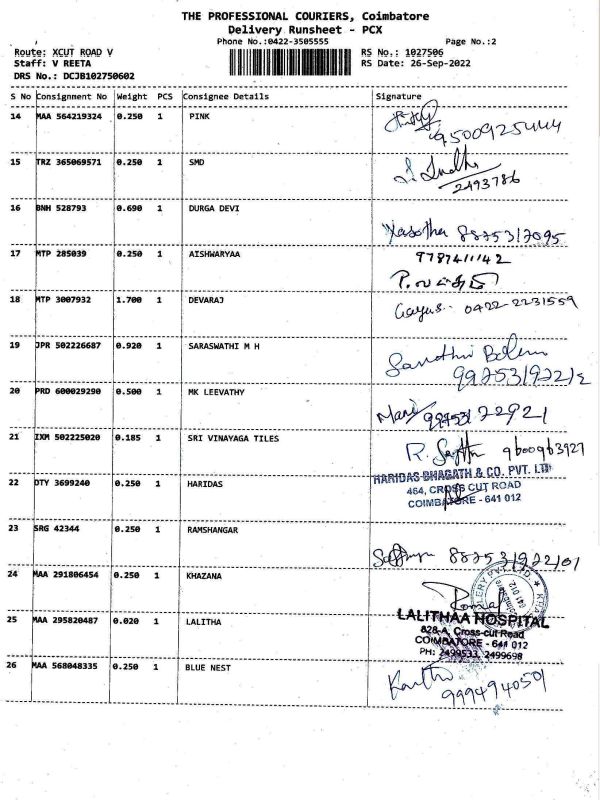 THE PROFESSIONAL COURIERS, Coimbatore
Delivery Runsheet - PCX
Phone No.:0422-3505555 Page No.:2
Route: XCUT ROAD V RS No.: 1027506
Staff: V REETA RS Date: 26-Sep-2022
DRS No.: DCJB102750602
S No Consignment No Weight PCS Consignee Details Signature
14 MAA 564219324 0.250 1 PINK
9500925444
15 TRZ 365069571 0.250 1 SMD
2493786
16 BNH 528793 0.690 1 DURGA DEVI
Yasotha 8875317095
17 MTP 285039 0.250 1 AISHWARYAA 9787411142
18 MTP 3007932 1.700 1 DEVARAJ
0422 2231559
19 JPR 502226687 0.920 1 SARASWATHI M H
20 PRD 600029290 0.500 1 MK LEEVATHY
Mani
21 IXM 502225020 0.185 1 SRI VINAYAGA TILES
R. 9600963927
22 OTY 3699240 0.250 1 HARIDAS
HARIDAS BHAGATH & CO. PVT. LTD
464, CROSS CUT ROAD
COIMBATORE - 641 012
23 SRG 42344 0.250 1 RAMSHANGAR
24 MAA 291806454 0.250 1 KHAZANA
25 MAA 295820487 0.020 1 LALITHA
LALITHAA HOSPITAL
828-A, Cross-cut Road
COIMBATORE - 641 012
PH: 2499533, 2499698
26 MAA 568048335 0.250 1 BLUE NEST
Karthi
9994940501